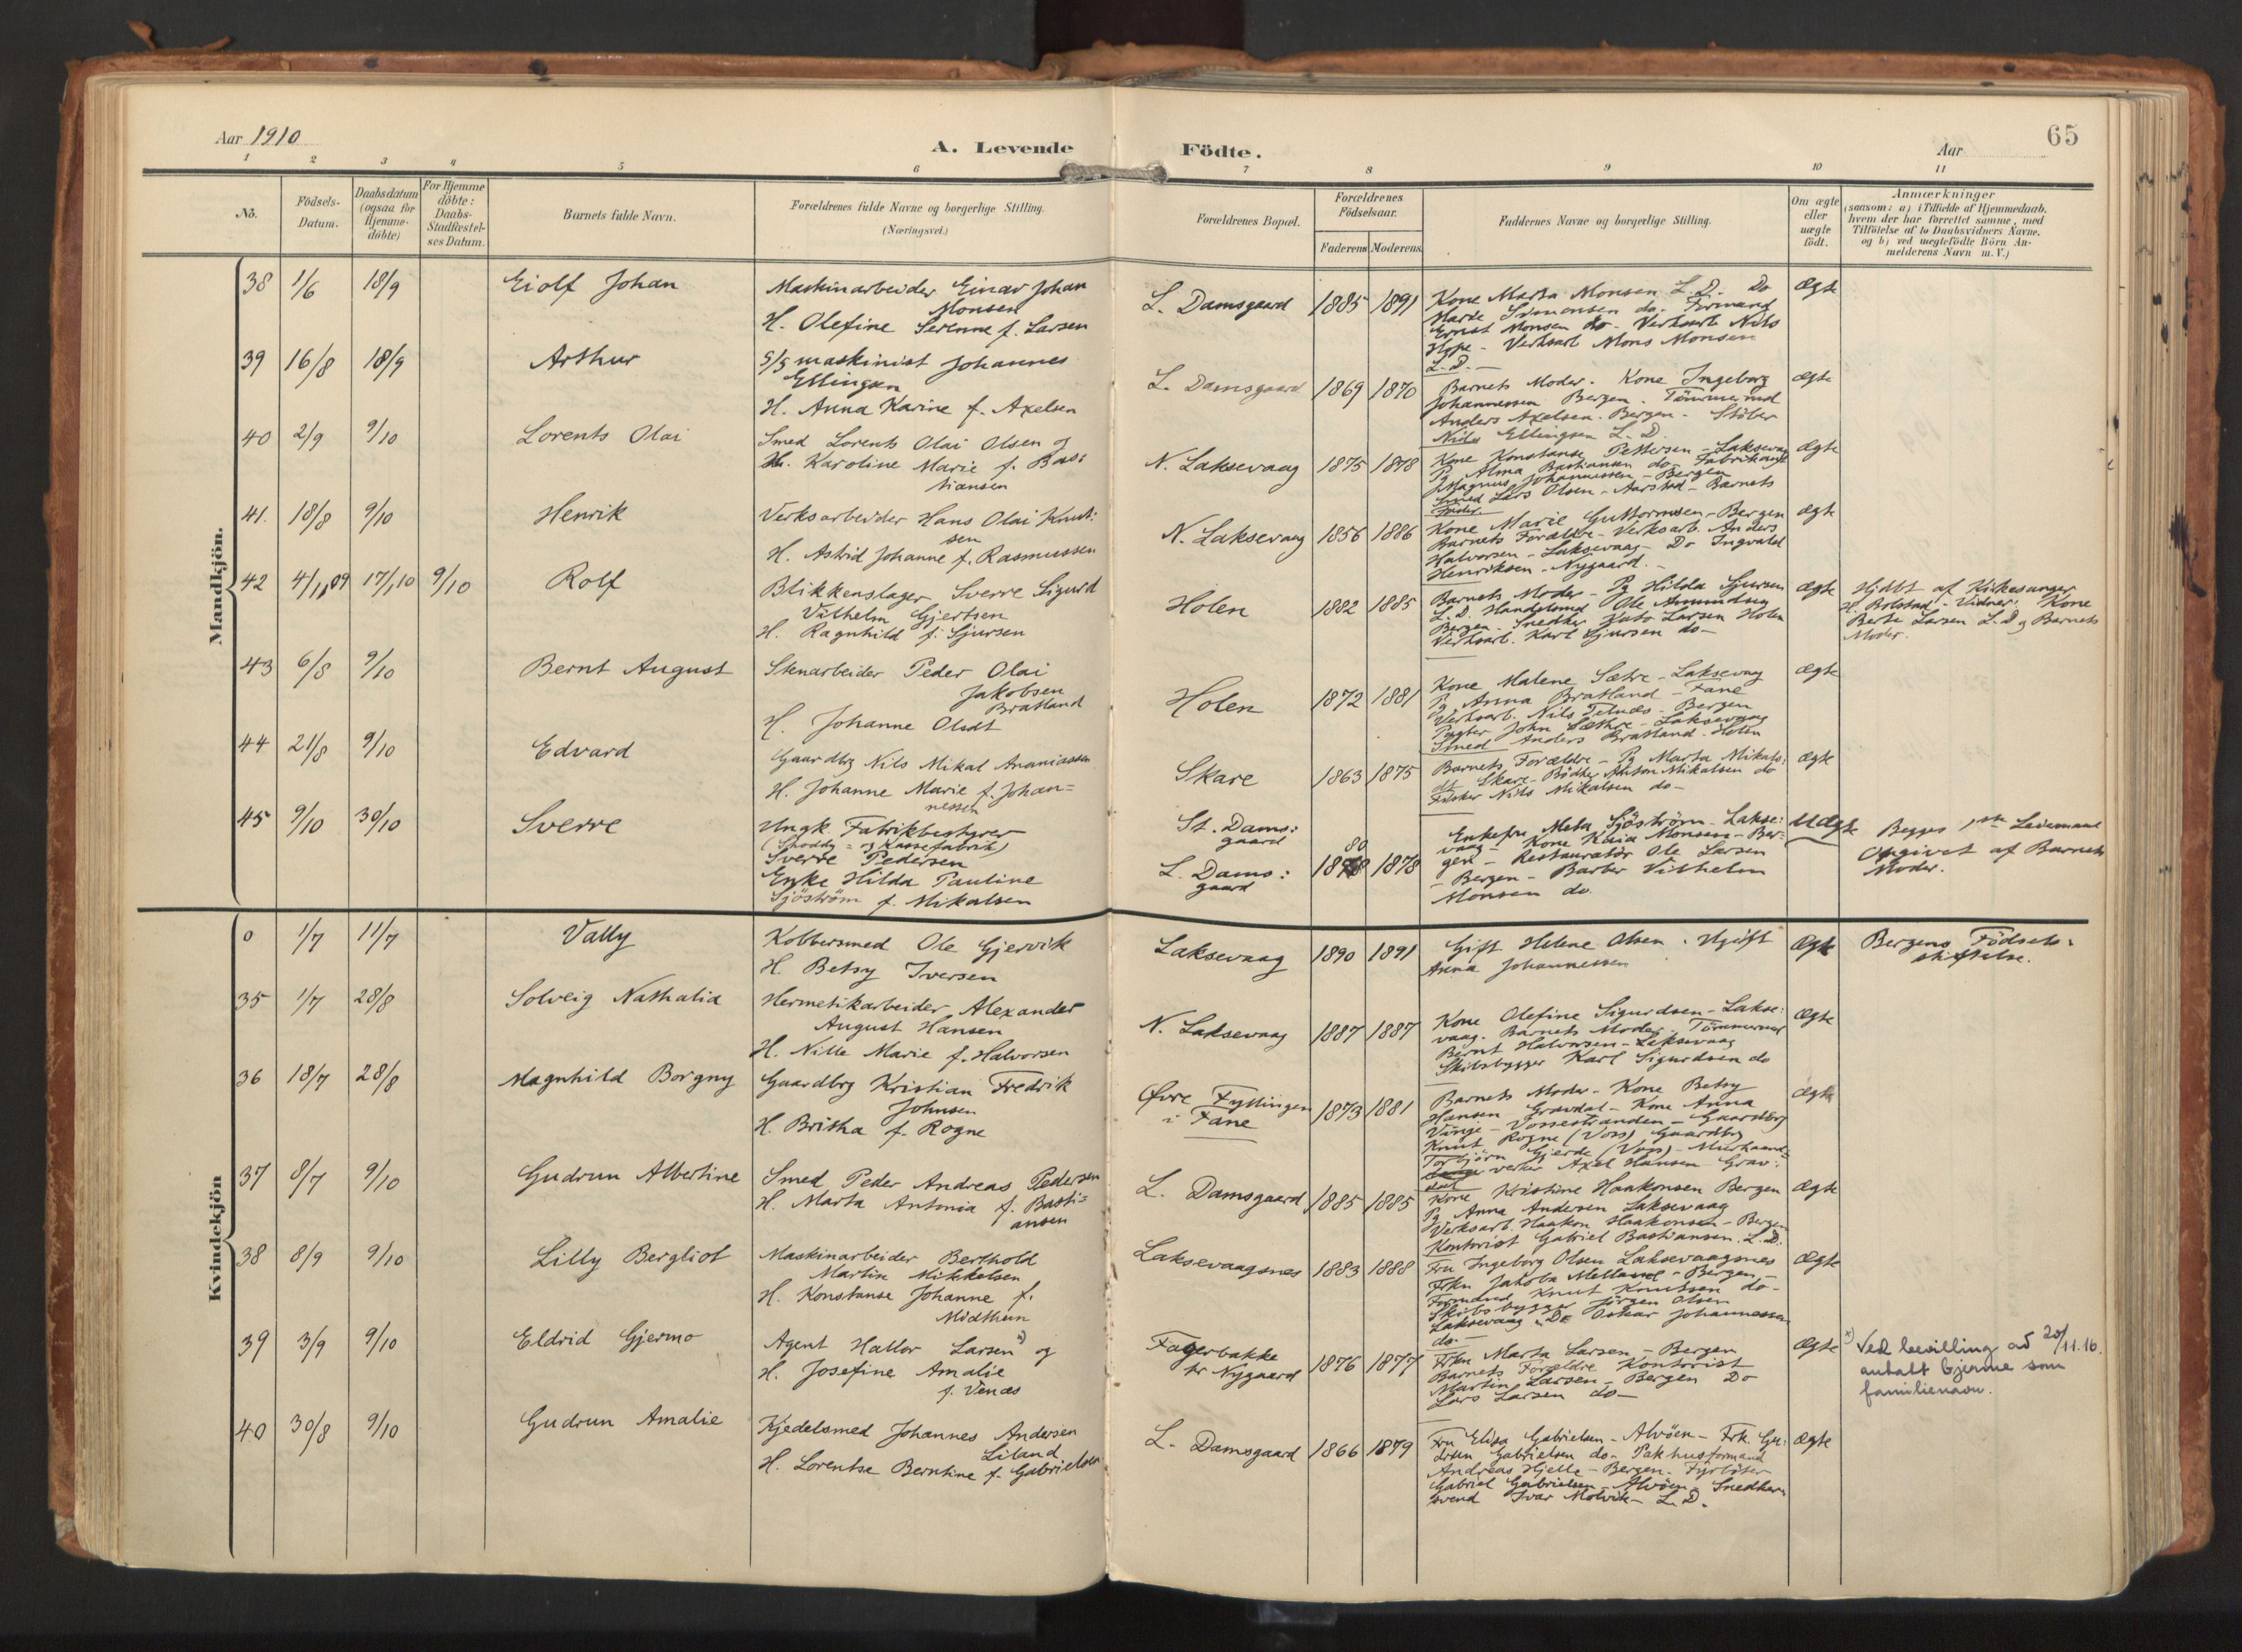 Aar 1910
A. Levende
Födte.
Aar
65
1 2 3 4 5 6 7 8 9 10 11
Nô.
Födsels-
Datum.
Daabsdatum
(ogsaa for
Hjemme-
döbte)
For Hjemme
döbte:
Daabs-
Stadfæstel-
ses Datum.
Barnets fulde Navn.
Forældrenes fulde Navne og borgerlige Stilling.
(Næringsvei.)
Forældrenes Bopæl.
Forældrenes
Födselsaar.
Faderens
Moderens
Faddernes Navne og borgerlige Stilling.
Om ægte
eller
uægte
födt.
Anmærkninger
(saasom: a) i Tilfælde af Hjemmedaab,
hvem der har forrettet samme, med
Tilföielse af to Daabsvidners Navne,
og b) ved uægtefödte Börn An-
melderens Navn m. V.)
Mandkjön.
38 1/6 18/9 Eiolf Johan
Maskinarbeider Einar Johan
Monsen
H. Olefine Serenne f. Larsen
L. Damsgaard 1885 1891
Kone Marta Monsen L. D. Do
Marie Simonsen do. Formand
Ernst Monsen do. Verksarb Nils
Hope - Verksarb Mons Monsen
L. D. -
Ægte
39 16/8 18/9 Arthur
S/S maskinist Johannes
Ellingsen
H. Anna Karine f. Axelsen
L. Damsgaard 1869 1870
Barnets Moder. Kone Ingeborg
Johannessen Bergen. Tömmermd
Anders Axelsen. Bergen - Stöber
Nils Ellingsen L. D.
Ægte
40 2/9 9/10 Lorents Olai
Smed Lorents Olai Olsen og
H. Karoline Marie f. Bas:
tiansen
N. Laksevaag 1875 1878
Kone Konstanse Pettersen - Laksevaag
Pg Alma Bastiansen do - Fabrikant
Magnus Johannessen - Bergen
Smed Lars Olsen - Aarstad - Barnets
Fader.
Ægte
41. 18/8 9/10 Henrik
Verksarbeider Hans Olai Knut:
sen
H. Astrid Johanne f. Rasmussen
N. Laksevaag 1856 1886
Kone Marie Guttormsen - Bergen
Barnets Forældre - Verksarb. Anders
Halvorsen - Laksevaag - Do Ingvald
Henriksen - Nygaard. -
Ægte
42 4/11 09 17/1 10 9/10 Rolf
Blikkenslager Sverre Sigurd
Vilhelm Gjertsen
H. Ragnhild f. Sjursen
Holen 1882 1885
Barnets Moder - Pg Hilda Sjursen
L. D. Handelsmd Ole Amundsen
Bergen. Snedker Larsen Holen
Verksarb. Karl Sjursen do -
Ægte
Hjdbt af Kirkesanger
H. Rolstad - Vidner: Kone
Berte Larsen L. D. og Barnets
Moder.
43 6/8 9/10 Bernt August
Stenarbeider Peder Olai
Jakobsen
Bratland
H. Johanne Olsdt
Holen 1872 1881
Kone Malene Sætre - Laksevaag
Pg Anna Bratland - Fane
Verksarb. Nils Telnæs - Bergen
John Sæthre - Laksevaag
Smed Anders Bratland - Holen
Ægte
44 21/8 9/10 Edvard
Gaardbrg Nils Mikal Ananiassen
H. Johanne Marie f. Johan=
nessen
Skare 1863 1875
Barnets Forældre - Pg Marta Mikals:
dt Skare - Bödker Anton Mikalsen do
Fisker Nils Mikalsen do -
Ægte
45 9/10 30/10 Sverre
Ungk. Fabrikbestyrer
(Shoddy = og Kassefabrik)
Sverre Pedersen
Enke Hilda Pauline
Sjöström f. Mikalsen
St. Dams:
gaard
L. Dams:
gaard
80
1878 1878
Enkefru Meta Sjöström - Lakse:
vaag - Kone Kaia Monsen - Ber-
gen - Restauratör Ole Larsen
- Bergen - Barber Vilhelm
Monsen do.
Uægte
Begges 1ste Leiermaal
Opgivet af Barnets
Moder.
Kvindekjön
0 1/7 11/7 Vally
Kobbersmed Ole Gjervik
H. Betsy Iversen
Laksevaag 1890 1891
Gift Helene Olsen. Ugift
Anna Johannessen
Ægte
Bergens Födsels=
stiftelse.
35 1/7 28/8 Solveig Nathalia
Hermetikarbeider Alexander
August Hansen
H. Nille Marie f. Halvorsen
N. Laksevaag 1887 1887
Kone Olefine Sigurdsen - Lakse:
vaag. Barnets Moder. Tömmermd
Bernt Halvorsen - Laksevaag
Skibsbygger Karl Sigurdsen do
Ægte
36 18/7 28/8 Magnhild Borgny
Gaardbrg Kristian Fredrik
Johnsen
H. Britha f. Rogne
Øvre Fyllingen
i Fane
1873 1881
Barnets Moder - Kone Betsy
Hansen Gravdal - Kone Anna
Vinje - Vossestranden - Gaardbrg
Knut Rogne (Voss) Gaardbrg
Torbjörn Gjerde (Voss) - Murhaand=
verker Axel Hansen Grav:
dal
Ægte
37 8/7 9/10 Gudrun Albertine
Smed Peder Andreas Pedersen
H. Marta Antonia f. Basti=
ansen
L. Damsgaard 1885 1885
Kone Kristine Haakonsen Bergen
Pg Anna Andersen Laksevaag
Verksarb. Haakon Haakonsen - Bergen
Kontorist Gabriel Bastiansen. L. D.
Ægte
38 8/9 9/10 Lilly Bergliot
Maskinarbeider Berthold
Martin Mikkelsen
H. Konstanse Johanne f.
Midthun
Laksevaagsnes 1883 1888
Fru Ingeborg Olsen Laksevaagsnes
Frkn Jakoba Melland - Bergen -
Formand Knut Knutsen do -
Skibsbygger Jörgen Olsen
Laksevaag Do Oskar Johannessen
do -
Ægte
39 3/9 9/10 Eldrid Gjermo
Agent Hallor Larsen x) og
H. Josefine Amalie
f. Venæs
Fagerbakke
pr Nygaard
1876 1877
Frkn Marta Larsen - Bergen
Barnets Forældre Kontorist
Martin Larsen - Bergen Do
Lars Larsen do -
Ægte
x) Ved bevilling av 20/11.16.
antatt Gjerme som
familienavn.
40 30/8 9/10 Gudrun Amalie
Kjedelsmed Johannes Andersen
Liland
H. Lorentse Berntine f. Gabrielsen
L. Damsgaard 1866 1879
Fru Elisa Gabrielsen - Alvöen - Frk. Gu:
drun Gabrielsen do - Pakhusformand
Andreas Hjelle - Bergen. Fyrböter
Gabriel Gabrielsen - Alvöen. Snedker-
svend Ivar Molvik - L. D.
Ægte